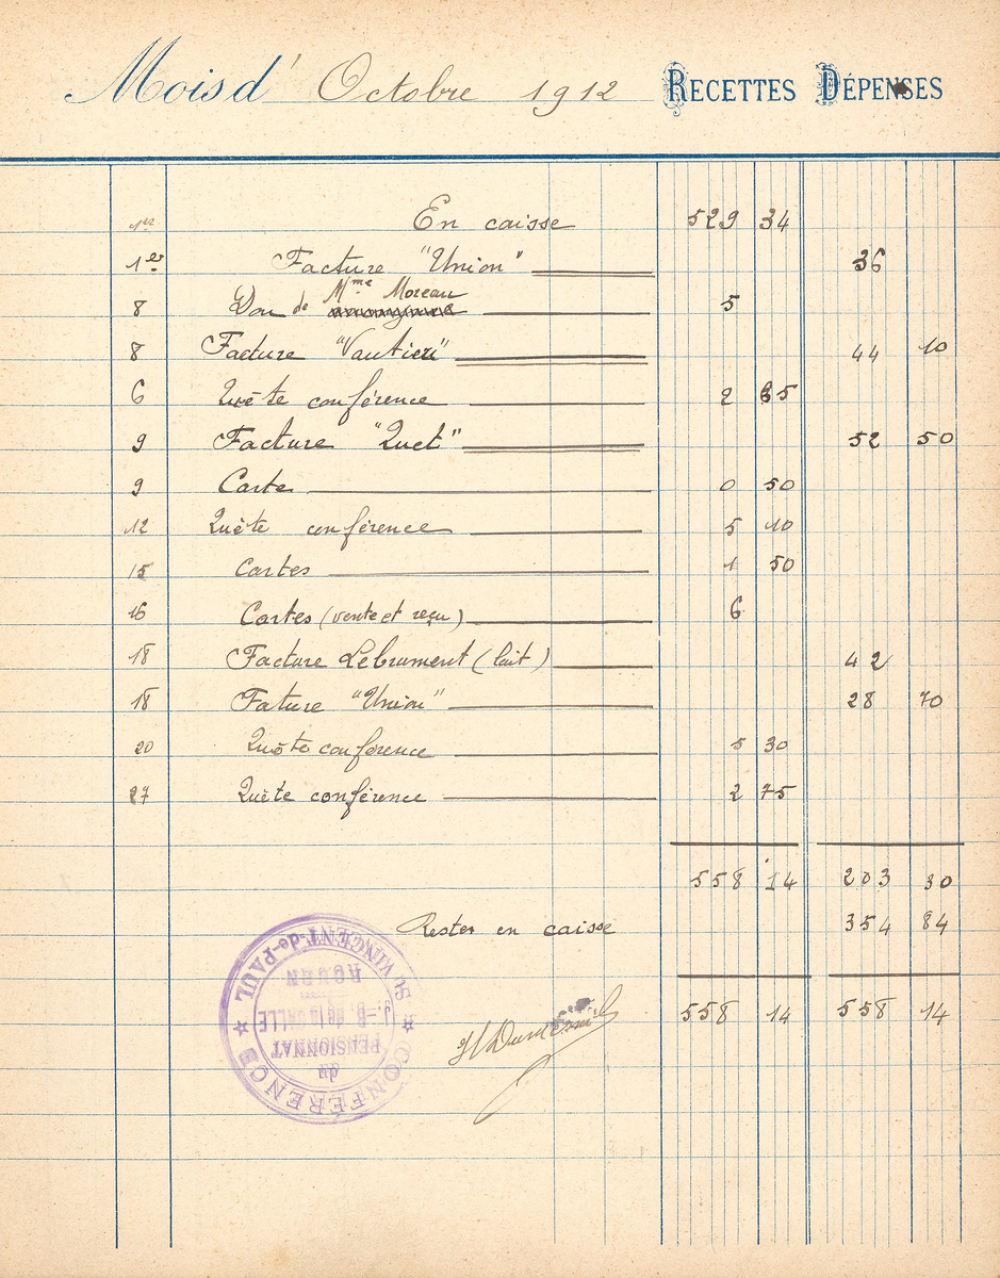 Mois d' Octobre 1912 RECETTES DÉPENSES
1er En caisse 529 34
1er Facture "Union" 36
8 Don de Mme Moreau 5
8 Facture "Vautier" 44 10
6 Quête conférence 2 65
9 Facture "Quet" 52 50
9 Carte 0 50
12 Quête conférence 5 10
15 Cartes 1 50
16 Cartes (vente et reçu) 6
18 Facture Lebrument (lait) 42
18 Fature "Union" 28 70
20 Quête conférence 5 30
27 Quête conférence 2 75
558 14 203 30
Rester en caisse 354 84
558 14 558 14
H Dumesnil
CONFÉRENCE St VINCENT-de-PAUL
du
PENSIONNAT
J.-B. de la SALLE
ROUEN